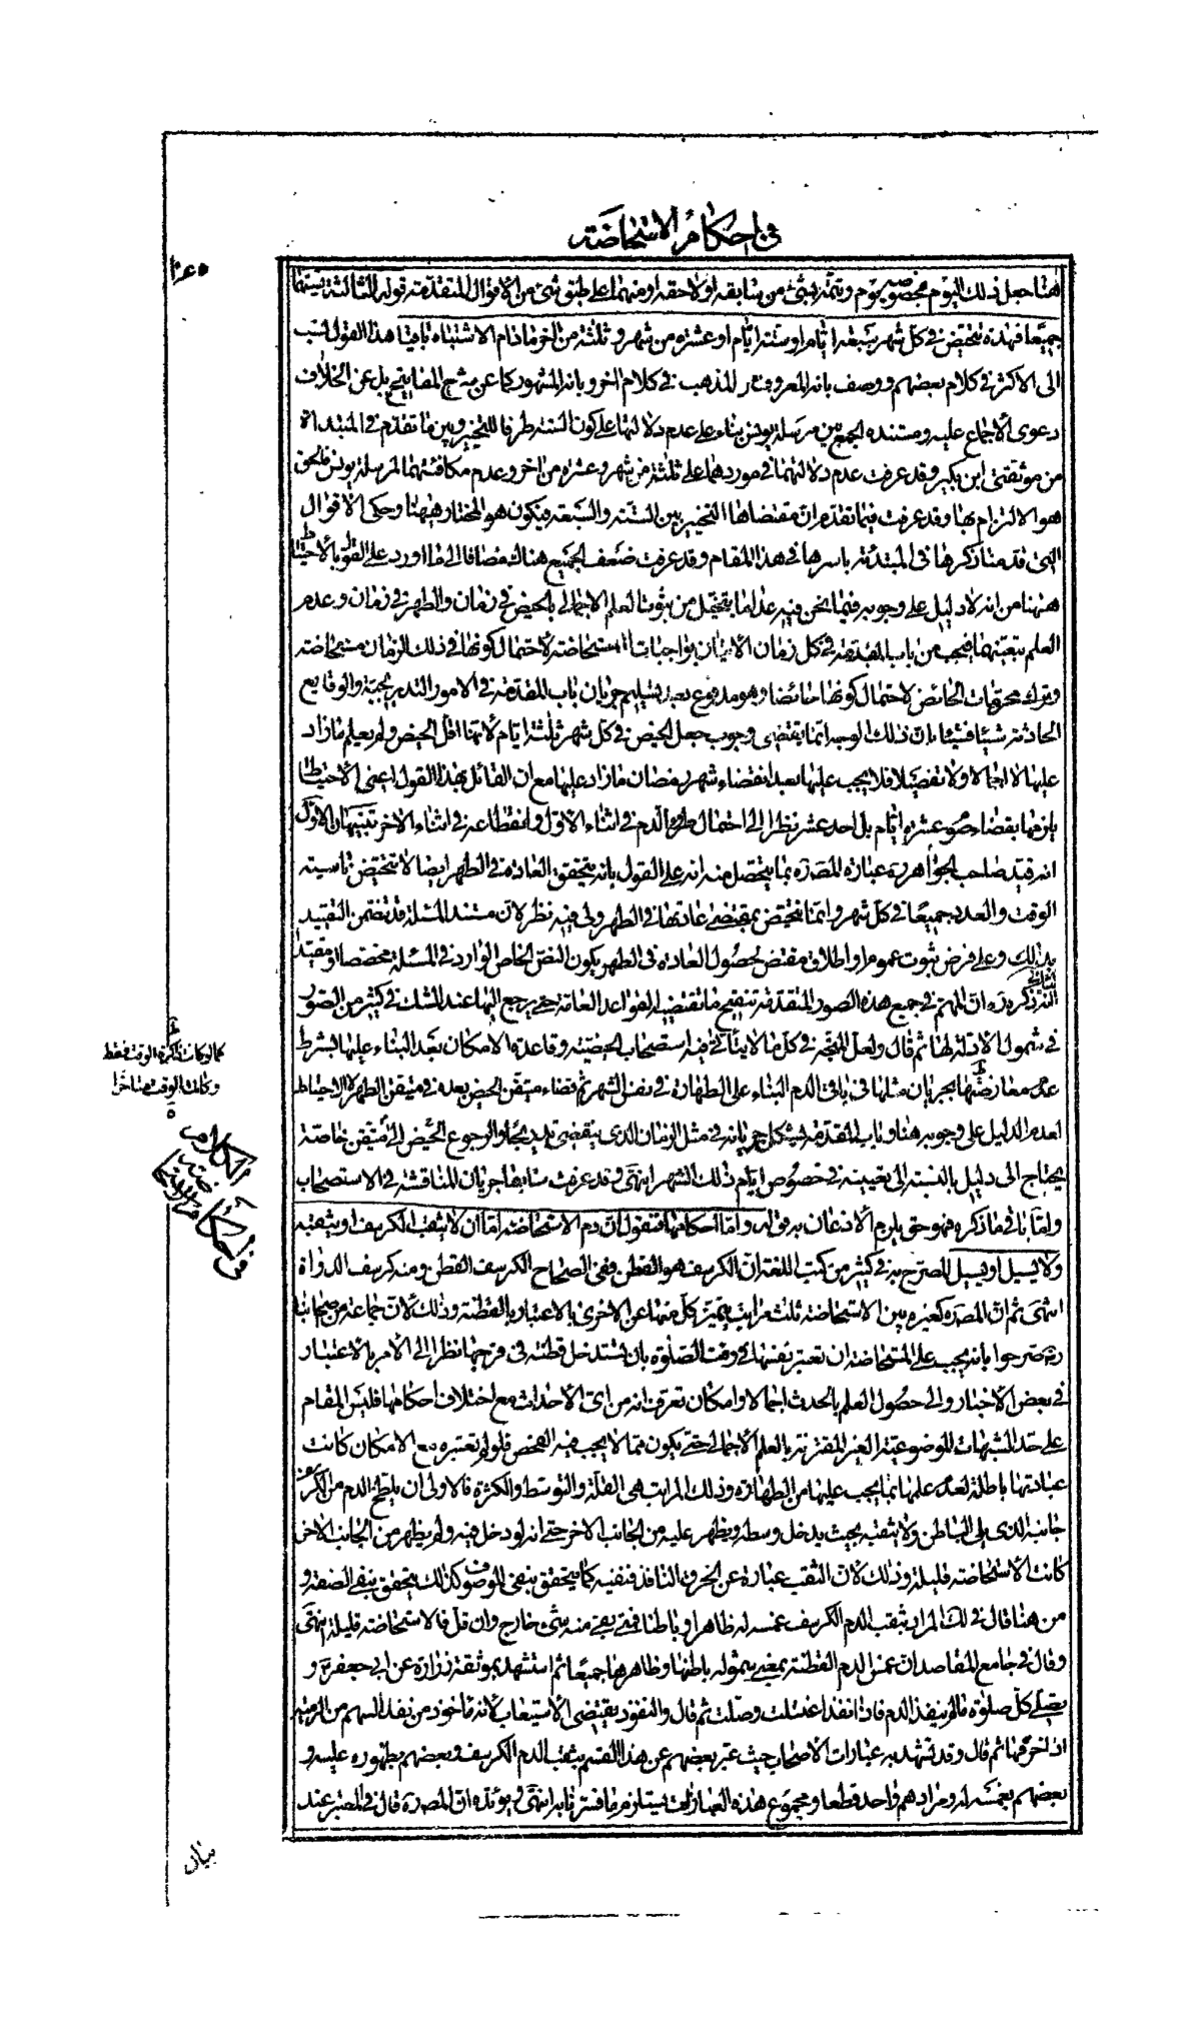 في احكام الاستحاضة
هنا جعل ذلك اليوم مخصوصه يوم وتتمه بشئ من سابقه او لاحقه او منهما على طبق شئ من الاقوال المتقدمة قوله الثالثة نسيتهما
جميعا فهذه تتحيض في كل شهر سبعة ايام او ستة ايام او عشرة من شهر وثلثة من اخر ما دام الاشتباه باقيا هذا القول نسب
الى الاكثر في كلام بعضهم ووصف بانه المعروف للمذهب في كلام اخر وبانه المشهور كما عن شرح المفاتيح بل عن الخلاف
دعوى الاجماع عليه ومستنده الجمع بين مرسلة يونس بناء على عدم دلالتها على كون الستة طرفا للتخيير وبين ما تقدم في المبتداة
من موثقتي ابن بكير وقد عرفت عدم دلالتهما في موردهما على ثلثة من شهر وعشرة من اخر وعدم مكافئتهما لمرسلة يونس فالحق
هو الالتزام بها وقد عرفت فيما تقدم ان مقتضاها التخيير بين الستة والسبعة فيكون هو المختار هيهنا وحكى الاقوال
التي قدمنا ذكرها في المبتدئة باسرها في هذا المقام وقد عرفت ضعف الجميع هناك مضافا الى ما اورد على القول بالاحتياط
ههنا من انه لا دليل على وجوبه فيما نحن فيه عدا ما يتخيل من ثبوت العلم الاجمالي بالحيض في زمان والطهر في زمان وعدم
العلم بتعينهما فيجب من باب المقدمة في كل زمان الاتيان بواجبات المستحاضة لاحتمال كونها في ذلك الزمان مستحاضة
وترك محرمات الحائض لاحتمال كونها حائضا وهو مدفوع بعد تسليم جريان باب المقدمة في الامور التدريجية والوقايع
الحادثة شيئا فشيئا بان ذلك الوجه انما يقتضى وجوب جعل الحيض في كل شهر ثلثة ايام لانها اقل الحيض ولم يعلم ما زاد
عليها لا اجمالا ولا تفصيلا فلا يجب عليها بعد انقضاء شهر رمضان ما زاد عليها مع ان القائل بهذا القول اعنى الاحتياط
يلزمها بقضاء صوم عشرة ايام بل احد عشر نظرا الى احتمال طرو الدم في اثناء الاول وانقطاعه في اثناء الاخر تنبيهان الاول
انه قيد صاحب الجواهر ره عبارة المصره بما يتحصل منه انه على القول بانه يتحقق العادة في الطهر ايضا لا تتحيض ناسية
الوقت والعدد جميعا في كل شهر وانما تتحيض بمقتضى عادتها في الطهر ولى فيه نظر لان مستند المسئلة قد تضمن التقييد
بذلك وعلى فرض ثبوت عموم او اطلاق مقتض لحصول العادة في الطهر يكون النص الخاص الوارد في المسئلة مخصصا او مقيدا
الثاني
انه ذكر ره ان المهم في جميع هذه الصور المتقدمة تنقيح ما تقتضيه القواعد العامة حتى يرجع اليها عند الشك في كثير من الصور
في شمول الادلة لها ثم قال ولعل المتجه في كل ما لا يتأتى فيه استصحاب الحيضية وقاعدة الامكان بعد البناء عليها بشرط
عدم معارضتها بجريان مثلها في باقى الدم البناء على الطهارة في نفس الشهر ثم قضاء متيقن الحيض بعده في متيقن الطهر لا الاحتياط
لعدم الدليل على وجوبه هنا وباب المقدمة يشكل جريانه في مثل الزمان الذى يتقضى تدريجا والرجوع الحيض الى متيقن خاصة
يحتاج الى دليل بالنسبة الى تعيينه في خصوص ايام ذلك الشهر انتهى وقد عرفت سابقا جريان المناقشة في الاستصحاب
واما باقى ما ذكره فهو حق يلزم الاذعان به قوله واما احكامها فنقول ان دم الاستحاضة اما ان لا يثقب الكرسف او يثقبه
ولا يسيل او يسيل المصرح به في كثير من كتب اللغة ان الكرسف هو القطن ففى الصحاح الكرسف القطن ومنه كرسف الدواة
انتهى ثم ان المصره كغيره بين الاستحاضة ثلث مراتب يتميز كل منها عن الاخرى بالاعتبار بالقطنة وذلك لان جماعة من اصحابنا
ره صرحوا بانه يجب على المستحاضة ان تعتبر نفسها في وقت الصلوة بان تستدخل قطنة في فرجها نظرا الى الامر بالاعتبار
في بعض الاخبار والى حصول العلم بالحدث اجمالا وامكان تعرف انه من اى الاحداث مع اختلاف احكامها فليس المقام
على حد الشبهات الموضوعية الغير المقترنة بالعلم الاجمالي حتى يكون مما لا يجب فيه الفحص فلو لم تعتبره مع الامكان كانت
عبادتها باطلة لعدم علمها بما يجب عليها من الطهارة وذلك المراتب هى القلة والتوسط والكثرة فالاولى ان يلطخ الدم من الكرسف
جانبه الذى يلى الباطن ولا يثقبه بحيث يدخل وسطه ويظهر عليه من الجانب الاخر حتى انه لو دخل فيه ولم يظهر من الجانب الاخر
كانت الاستحاضة قليلة وذلك لان الثقب عبارة عن الخرق النافذ فنفيه كما يتحقق بنفى الموصوف كذلك يتحقق بنفى الصفة و
من هنا قال في لك المراد بثقب الدم الكرسف غمسه له ظاهرا وباطنا فمتى بقى منه شئ خارج وان قل فالاستحاضة قليلة انتهى
وقال في جامع المقاصد ان غمس الدم القطنة بمعنى شموله باطنها وظاهرها جميعا ثم استشهد بموثقة زرارة عن ابى جعفر ع و
تصلى كل صلوة ما لم ينفذ الدم فاذا نفذ اغتسلت وصلت ثم قال والنفوذ يقتضى الاستيعاب لانه ماخوذ من نفذ السهم من الرمية
اذا خرقها ثم قال وقد تشهد به عبارات الاصحاب حيث عبر بعضهم عن هذا القسم بثقب الدم الكرسف وبعضهم بظهوره عليه و
بعضهم بغمسه له ومرادهم واحد قطعا ومجموع هذه العبارات يستلزم ما فسرنا به انتهى ويؤيده ان المصره قال في المعتبر عند
كما لو كانت ذاكرة الوقت فقط
وكان الوقت متاخرا
الكلام
في احكام الاستحاضة
بيان